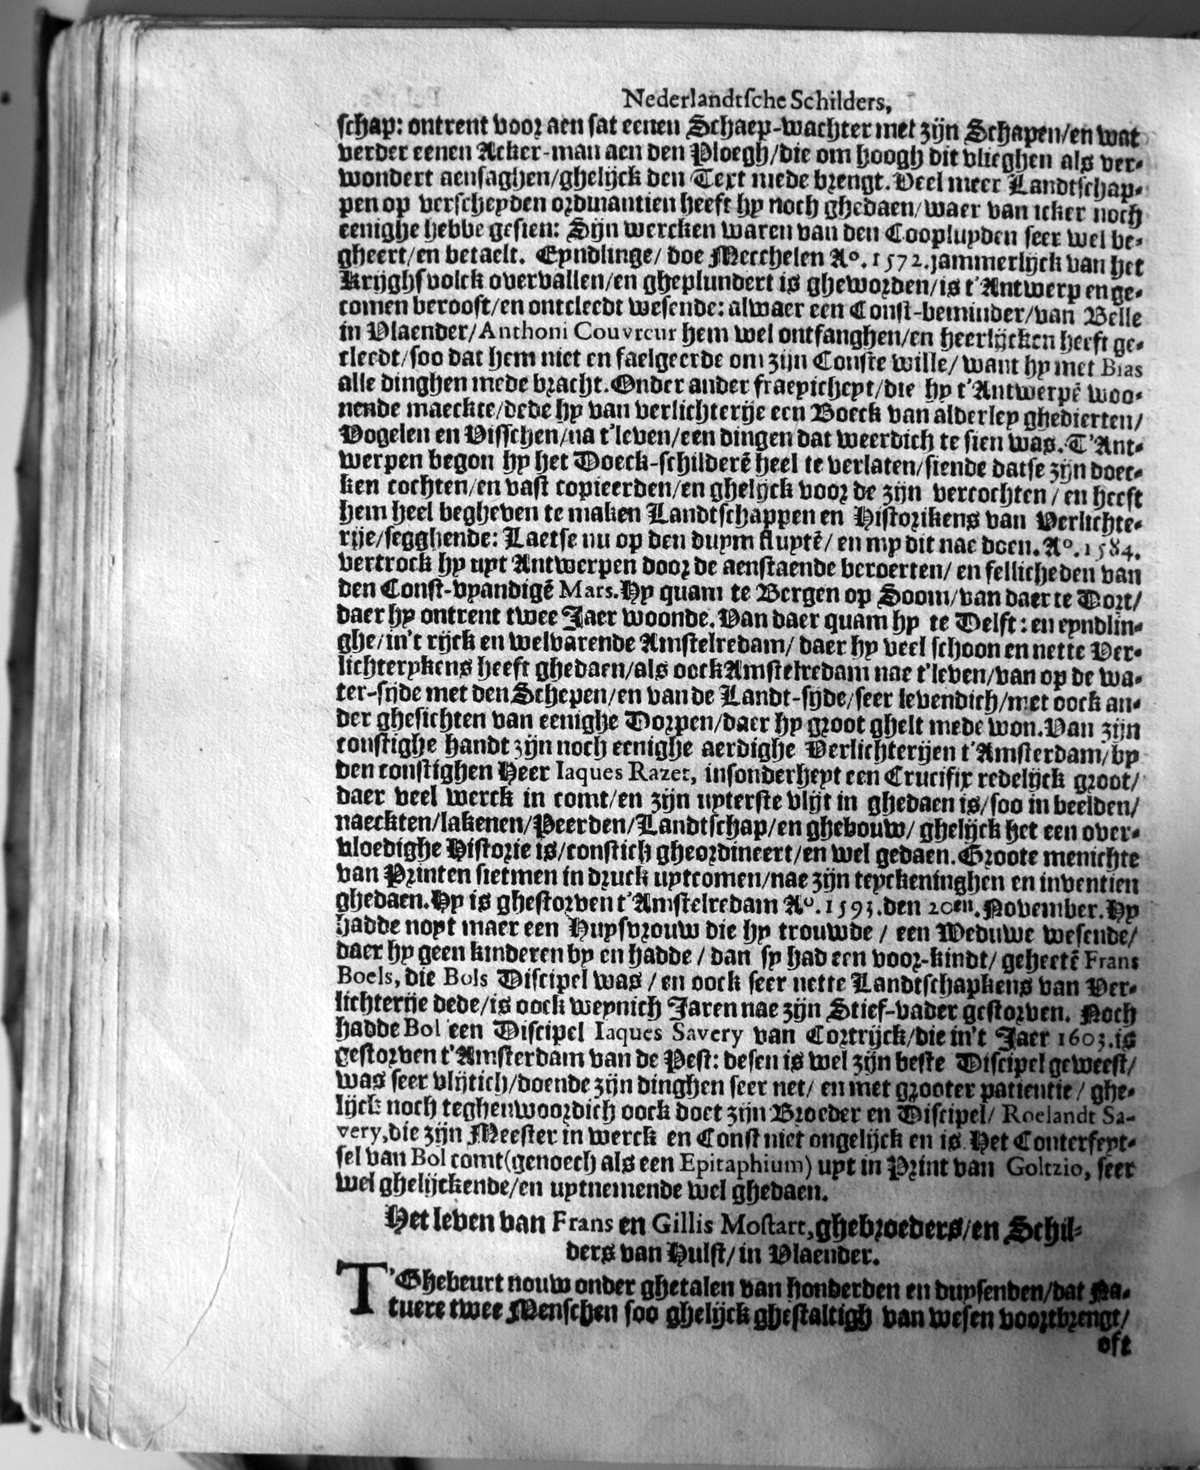 Nederlandtsche Schilders,
schap: ontrent voor aen sat eenen Schaep-wachter met zijn Schapen/en wat
verder eenen Acker-man aen den Ploegh/die om hoogh dit vlieghen als ver-
wondert aensaghen/ghelijck den Text mede brengt. Veel meer Landtschap-
pen op verscheyden ordinantien heeft hy noch ghedaen/waer van icker noch
eenighe hebbe gesien: Sijn wercken waren van den Cooplupden seer wel be-
gheert/en betaelt. Eyndlinge/ doe Mecchelen Ao. 1572. jammerlijck van het
Krijghsvolck overvallen/en gheplundert is gheworden/is t'Antwerp en ge-
comen berooft/en ontcleedt wesende: alwaer een Const-beminder/van Belle
in Vlaender/Anthoni Couvreur hem wel ontfanghen/en heerlijcken heeft ge-
cleedt/soo dat hem niet en faelgeerde om zijn Conste wille/ want hy met Bias
alle dinghen mede bracht. Onder ander fraeyicheyt/die hy t'Antwerpē woo-
nende maeckte/dede hy van verlichterije een Boeck van alderley ghedierten/
Vogelen en Visschen/na t'leven/een dingen dat weerdich te sien was. T'Ant-
werpen begon hy het Doeck-schilderē heel te verlaten/siende datse zijn doec-
ken cochten/en vast copieerden/en ghelijck voor de zijn vercochten/ en heeft
hem heel begheven te maken Landtschappen en Historikens van Verlichte-
rije/segghende: Laetse nu op den duym fluytē/ en my dit nae doen. Ao. 1584.
vertrock hy uyt Antwerpen door de aenstaende beroerten/ en fellicheden van
den Const-vyandigē Mars. Hy quam te Bergen op Soom/van daer te Dort/
daer hy ontrent twee Jaer woonde. Van daer quam hy te Delft: en eyndlin-
ghe/in't rijck en welvarende Amstelredam/ daer hy veel schoon en nette Ver-
lichterykens heeft ghedaen/als oock Amstelredam nae t'leven/van op de wa-
ter-sijde met den Schepen/en van de Landt-sijde/seer levendich/met oock an-
der ghesichten van eenighe Dorpen/daer hy groot ghelt mede won. Van zijn
constighe handt zijn noch eenighe aerdighe Verlichterijen t'Amsterdam/by
den constighen Heer Iaques Razet, insonderheyt een Crucifix redelijck groot/
daer veel werck in comt/en zijn uyterste vlijt in ghedaen is/soo in beelden/
naeckten/lakenen/Peerden/Landtschap/en ghebouw/ ghelijck het een over-
vloedighe Historie is/constich gheordineert/en wel gedaen. Groote menichte
van Printen sietmen in druck uytcomen/nae zijn teyckeninghen en inventien
ghedaen. Hy is ghestorven t'Amstelredam Ao. 1593. den 20en. November. Hy
hadde noyt maer een Huysvrouw die hy trouwde / een Weduwe wesende/
daer hy geen kinderen by en hadde / dan sy had een voor-kindt/ geheetē Frans
Boels, die Bols Discipel was / en oock seer nette Landtschapkens van Ver-
lichterije dede/is oock weynich Jaren nae zijn Stief-vader gestorven. Noch
hadde Bol een Discipel Iaques Savery van Cortrijck/die in't Jaer 1603. is
gestorven t'Amsterdam van de Pest: desen is wel zijn beste Discipel geweest/
was seer vlijtich/doende zijn dinghen seer net/ en met grooter patientie / ghe-
lijck noch teghenwoordich oock doet zijn Broeder en Discipel/ Roelandt Sa-
very, die zijn Meester in werck en Const niet ongelijck en is. Het Conterfeyt-
sel van Bol comt (genoech als een Epitaphium) uyt in Print van Goltzio, seer
wel ghelijckende/en uytnemende wel ghedaen.
Het leven van Frans en Gillis Mostart, ghebroeders/en Schil-
ders van Hulst/in Vlaender.
T'Ghebeurt nouw onder ghetalen van honderden en duysenden/dat Na-
tuere twee Menschen soo ghelijck ghestaltigh van wesen voortbrengt/
oft